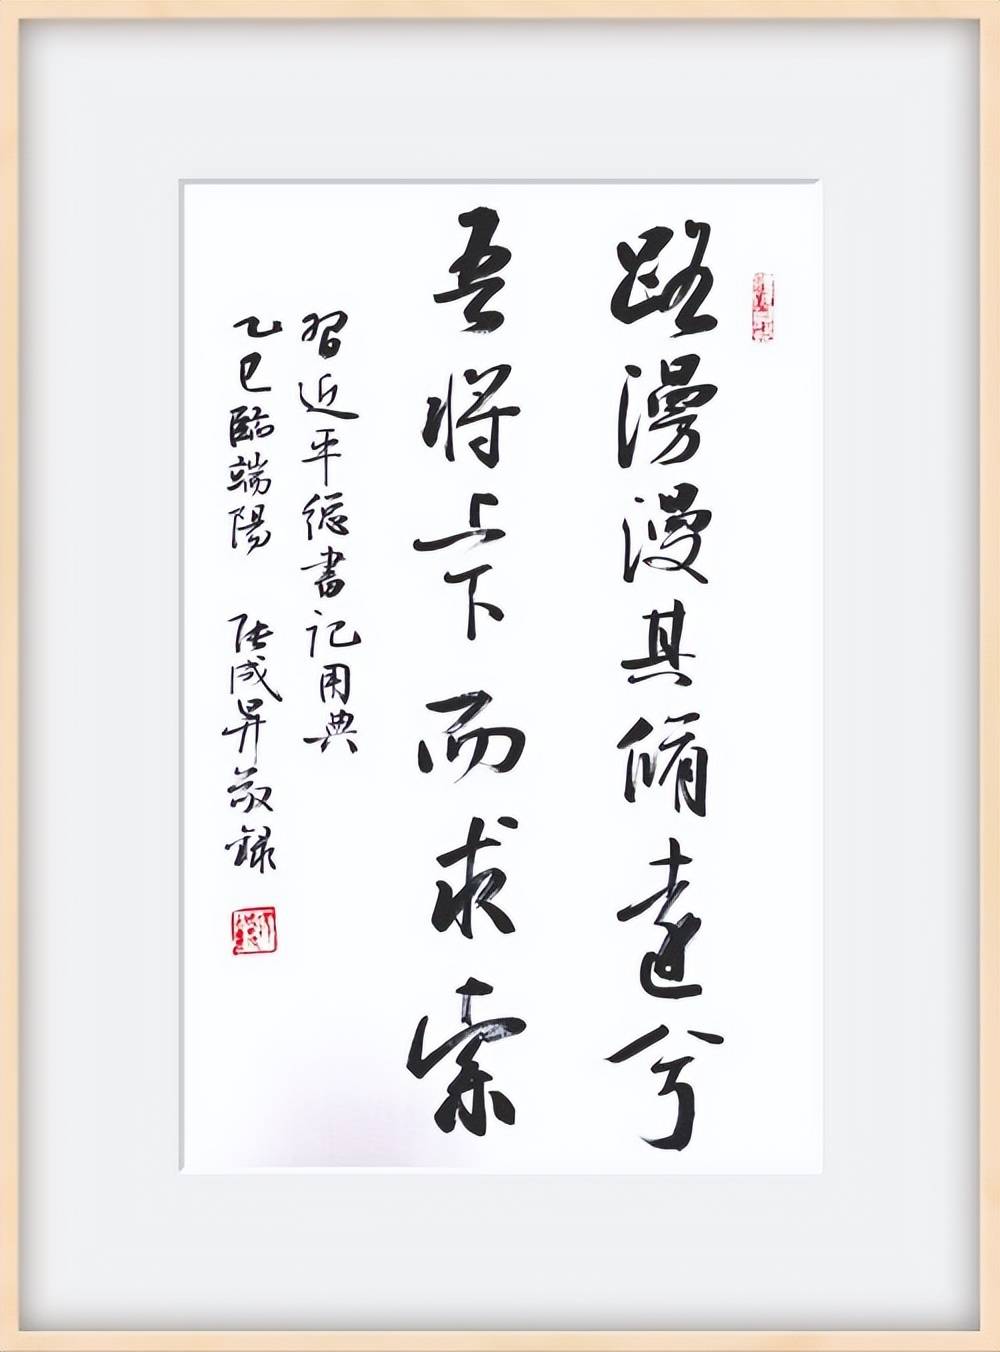 路漫漫其脩遠兮
吾將上下而求索
習近平總書記用典
乙巳臨端陽 張成昇敬錄